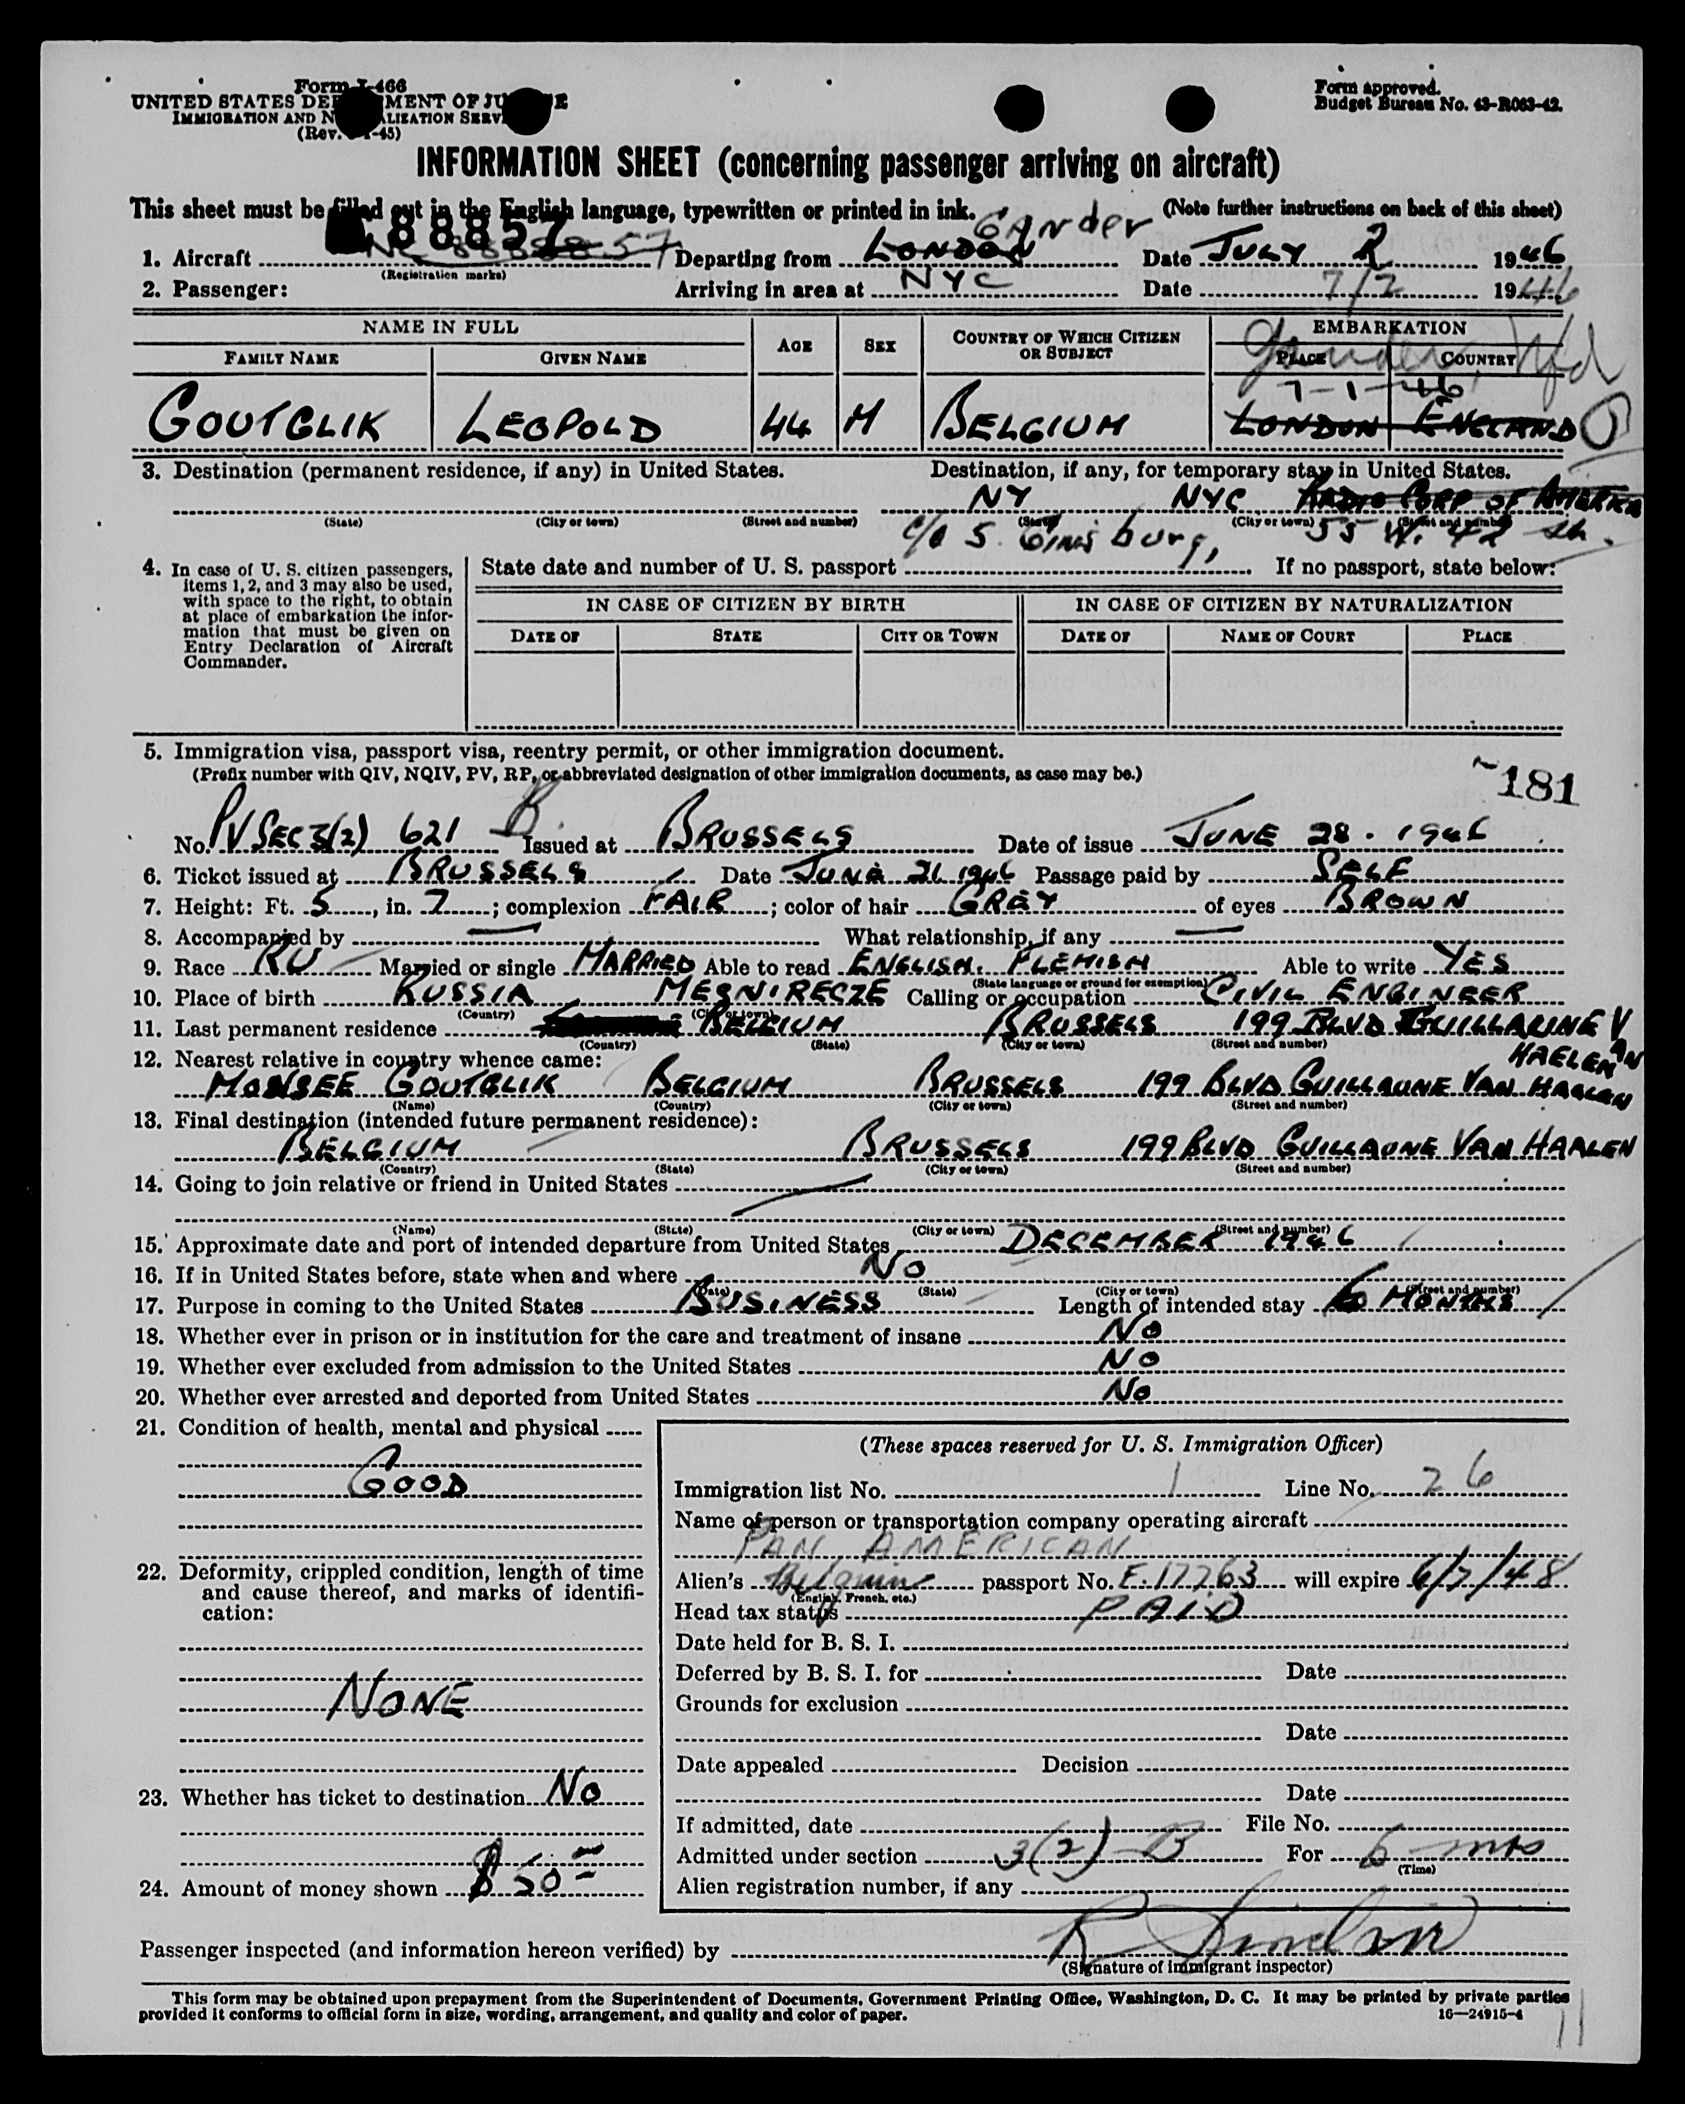 Form I-466
UNITED STATES DEPARTMENT OF JUSTICE
IMMIGRATION AND NATURALIZATION SERVICE
(Rev. -45)
Form approved.
Budget Bureau No. 43-R063-42.
INFORMATION SHEET (concerning passenger arriving on aircraft)
This sheet must be filled out in the English language, typewritten or printed in ink. (Note further instructions on back of this sheet)
88857 Gander
1. Aircraft NC 88857 Departing from LONDON Date JULY 2 1946
(Registration marks)
2. Passenger: Arriving in area at NYC Date 7/2 1946
NAME IN FULL AGE SEX COUNTRY OF WHICH CITIZEN OR SUBJECT EMBARKATION
FAMILY NAME GIVEN NAME PLACE COUNTRY
Gander, Nfd
7-1-46
GOUTGLIK LEOPOLD 44 M BELGIUM LONDON ENGLAND
3. Destination (permanent residence, if any) in United States. Destination, if any, for temporary stay in United States.
NY NYC RADIO CORP OF AMERICA
(State) (City or town) (Street and number) (State) (City or town) (Street and number)
c/o S. Ginsburg, 55 W. 42 St.
4. In case of U. S. citizen passengers, items 1, 2, and 3 may also be used, with space to the right, to obtain at place of embarkation the information that must be given on Entry Declaration of Aircraft Commander.
State date and number of U. S. passport If no passport, state below:
IN CASE OF CITIZEN BY BIRTH IN CASE OF CITIZEN BY NATURALIZATION
DATE OF STATE CITY OR TOWN DATE OF NAME OF COURT PLACE
5. Immigration visa, passport visa, reentry permit, or other immigration document.
(Prefix number with QIV, NQIV, PV, RP, or abbreviated designation of other immigration documents, as case may be.)
181
No. PV SEC 3(2) 621 B. Issued at BRUSSELS Date of issue JUNE 28. 1946
6. Ticket issued at BRUSSELS Date JUNE 21 1946 Passage paid by SELF
7. Height: Ft. 5, in. 7; complexion FAIR; color of hair GREY of eyes BROWN
8. Accompanied by — What relationship, if any —
9. Race RU Married or single MARRIED Able to read ENGLISH. FLEMISH Able to write YES
(State language or ground for exemption)
10. Place of birth RUSSIA MESNIRECZE Calling or occupation CIVIL ENGINEER
(Country) (City or town)
11. Last permanent residence BELGIUM BRUSSELS 199 BLVD GUILLAUNE VAN
(Country) (State) (City or town) (Street and number)
HAELEN
12. Nearest relative in country whence came:
MONSEE GOUTGLIK BELGIUM BRUSSELS 199 BLVD GUILLAUNE VAN HAALEN
(Name) (Country) (City or town) (Street and number)
13. Final destination (intended future permanent residence):
BELGIUM BRUSSELS 199 BLVD GUILLAUNE VAN HAALEN
(Country) (State) (City or town) (Street and number)
14. Going to join relative or friend in United States
(Name) (State) (City or town) (Street and number)
15. Approximate date and port of intended departure from United States DECEMBER 1946
16. If in United States before, state when and where NO
(Date) (State) (City or town) (Street and number)
17. Purpose in coming to the United States BUSINESS Length of intended stay 6 MONTHS
18. Whether ever in prison or in institution for the care and treatment of insane NO
19. Whether ever excluded from admission to the United States NO
20. Whether ever arrested and deported from United States NO
21. Condition of health, mental and physical
GOOD
22. Deformity, crippled condition, length of time and cause thereof, and marks of identification:
NONE
23. Whether has ticket to destination NO
24. Amount of money shown $50
(These spaces reserved for U. S. Immigration Officer)
Immigration list No. 1 Line No. 26
Name of person or transportation company operating aircraft
PAN AMERICAN
Alien's Belgium passport No. E.17763 will expire 6/7/48
(English, French, etc.)
Head tax status PAID
Date held for B. S. I.
Deferred by B. S. I. for Date
Grounds for exclusion
Date
Date appealed Decision
Date
If admitted, date File No.
Admitted under section 3(2)-B For 6 mos
(Time)
Alien registration number, if any
Passenger inspected (and information hereon verified) by
(Signature of immigrant inspector)
This form may be obtained upon prepayment from the Superintendent of Documents, Government Printing Office, Washington, D. C. It may be printed by private parties
provided it conforms to official form in size, wording, arrangement, and quality and color of paper. 16—24915-4